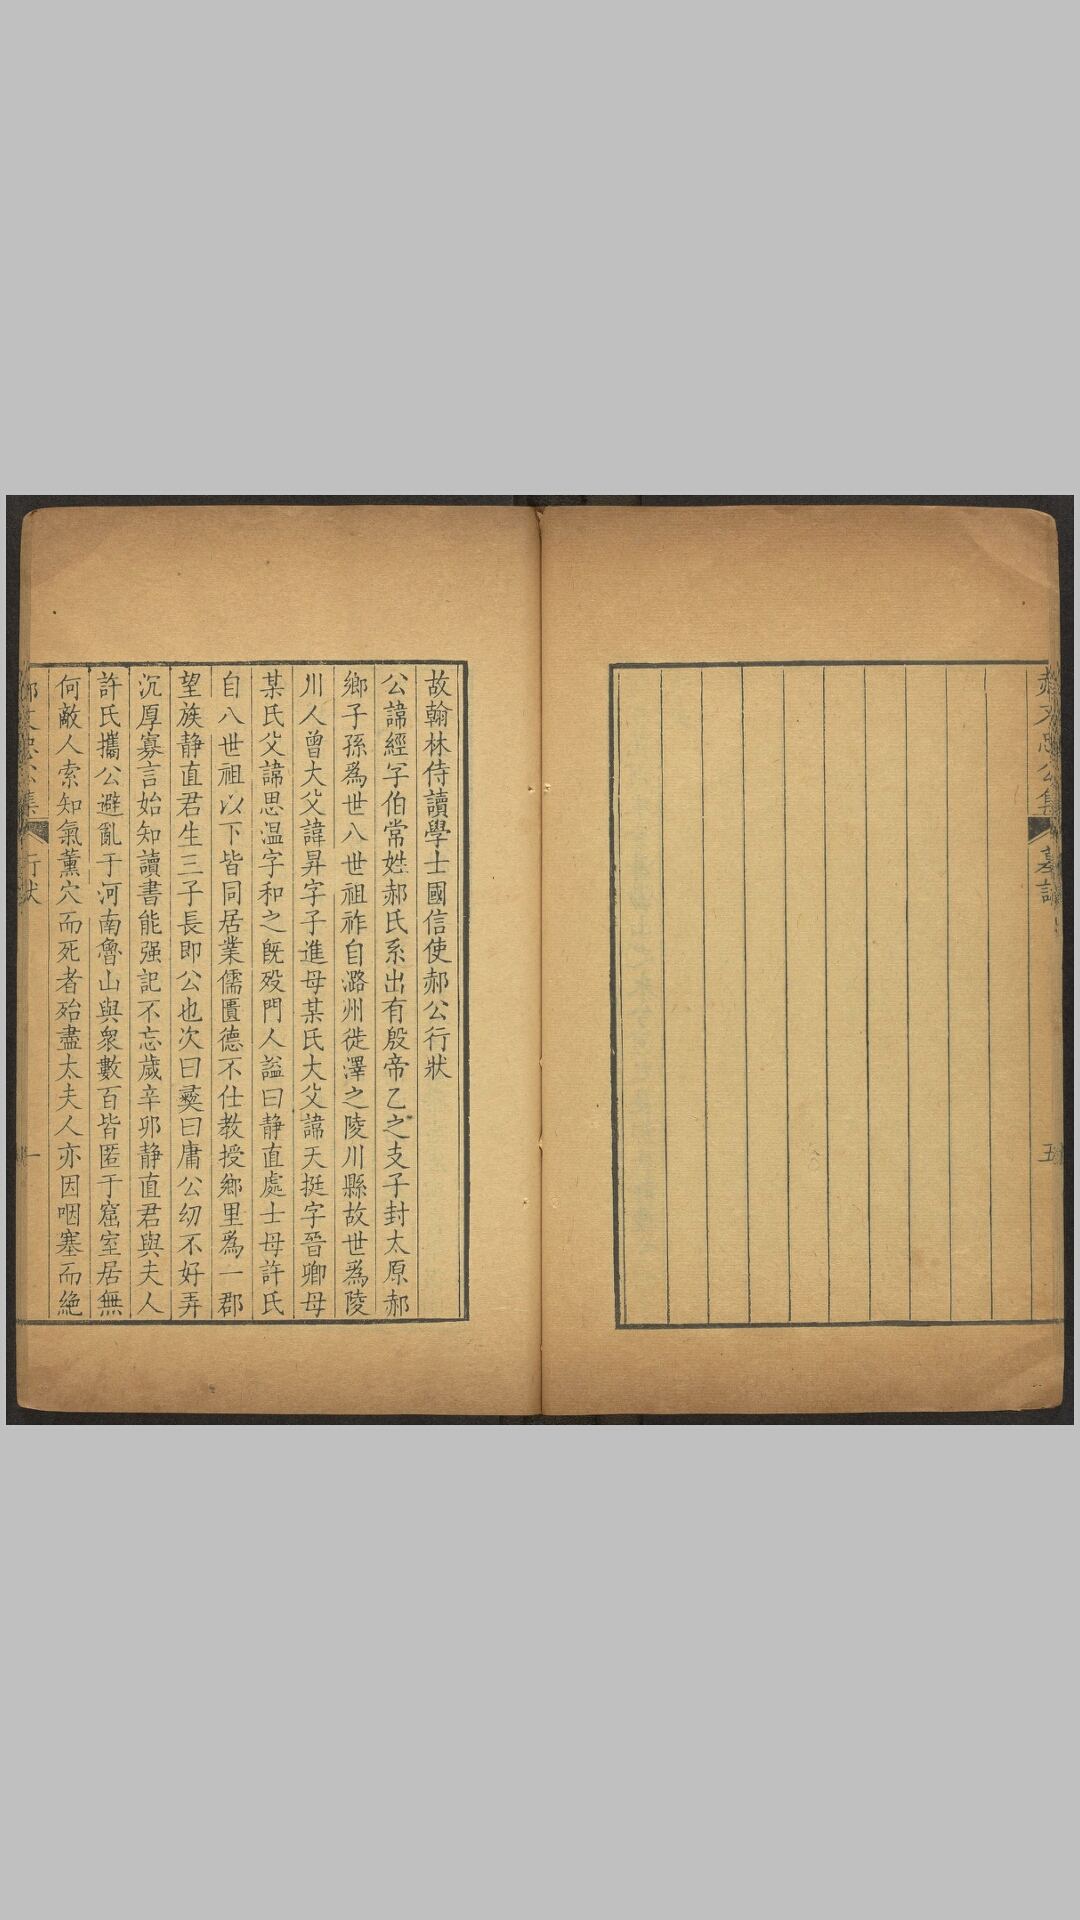 墓
五
故翰林侍讀學士國信使郝公行狀
公諱經字伯常姓郝氏系出有殷帝乙之支子封太原郝
鄉子孫爲世八世祖祚自潞州徙澤之陵川縣故世爲陵
川人曾大父諱昇字子進母某氏大父諱天挺字晉卿母
某氏父諱思温字和之既歿門人謚曰静直處士母許氏
自八世祖以下皆同居業儒匱德不仕教授鄉里爲一郡
望族静直君生三子長即公也次曰彛曰庸公幼不好弄
沉厚寡言始知讀書能强記不忘歲辛卯静直君與夫人
許氏攜公避亂于河南魯山與衆數百皆匿于窟室居無
何敵人索知氣薰穴而死者殆盡太夫人亦因咽塞而絶
行狀
一